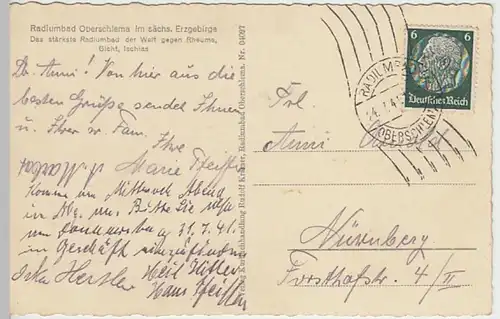 Radiumbad Oberschlema im sächs. Erzgebirge
Das stärkste Radiumbad der Welt gegen Rheuma,
Gicht, Ischias
Lb. Anni! Von hier aus die
besten Grüße sendet Ihnen
u. Ihrer w. Fam. Ihre
Marie Pfeiffer
Komme am Mittwoch Abend
in Nbg. an. Bitte Sie
am Donnerstag 31.7.41.
im Geschäft einzufinden
Heil Hitler
Hans Pfeiffer
Verlag Kunstbuchhandlung Rudolf Radiumbad Oberschlema. Nr. 04097
6 6
Deutsches Reich
RADIUMBAD
OBERSCHLEMA
Frl.
Anni
Nürnberg
Forsthofstr. 4/II